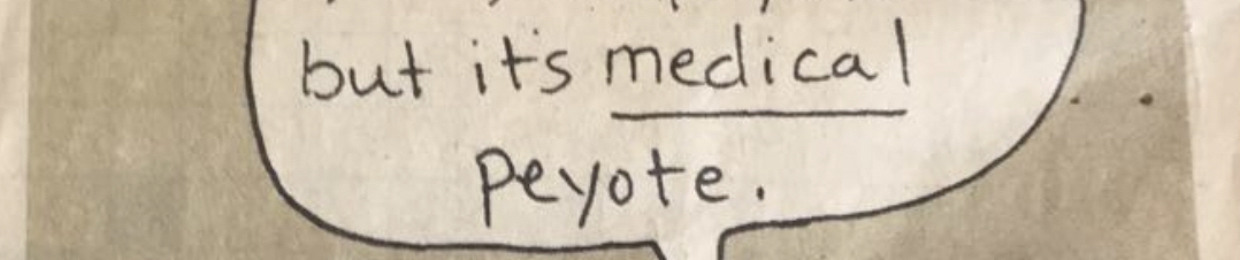 but it's medical
peyote.